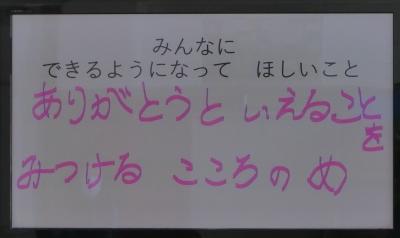 みんなに
できるようになって　ほしいこと
ありがとうと いえることを
みつける こころのめ